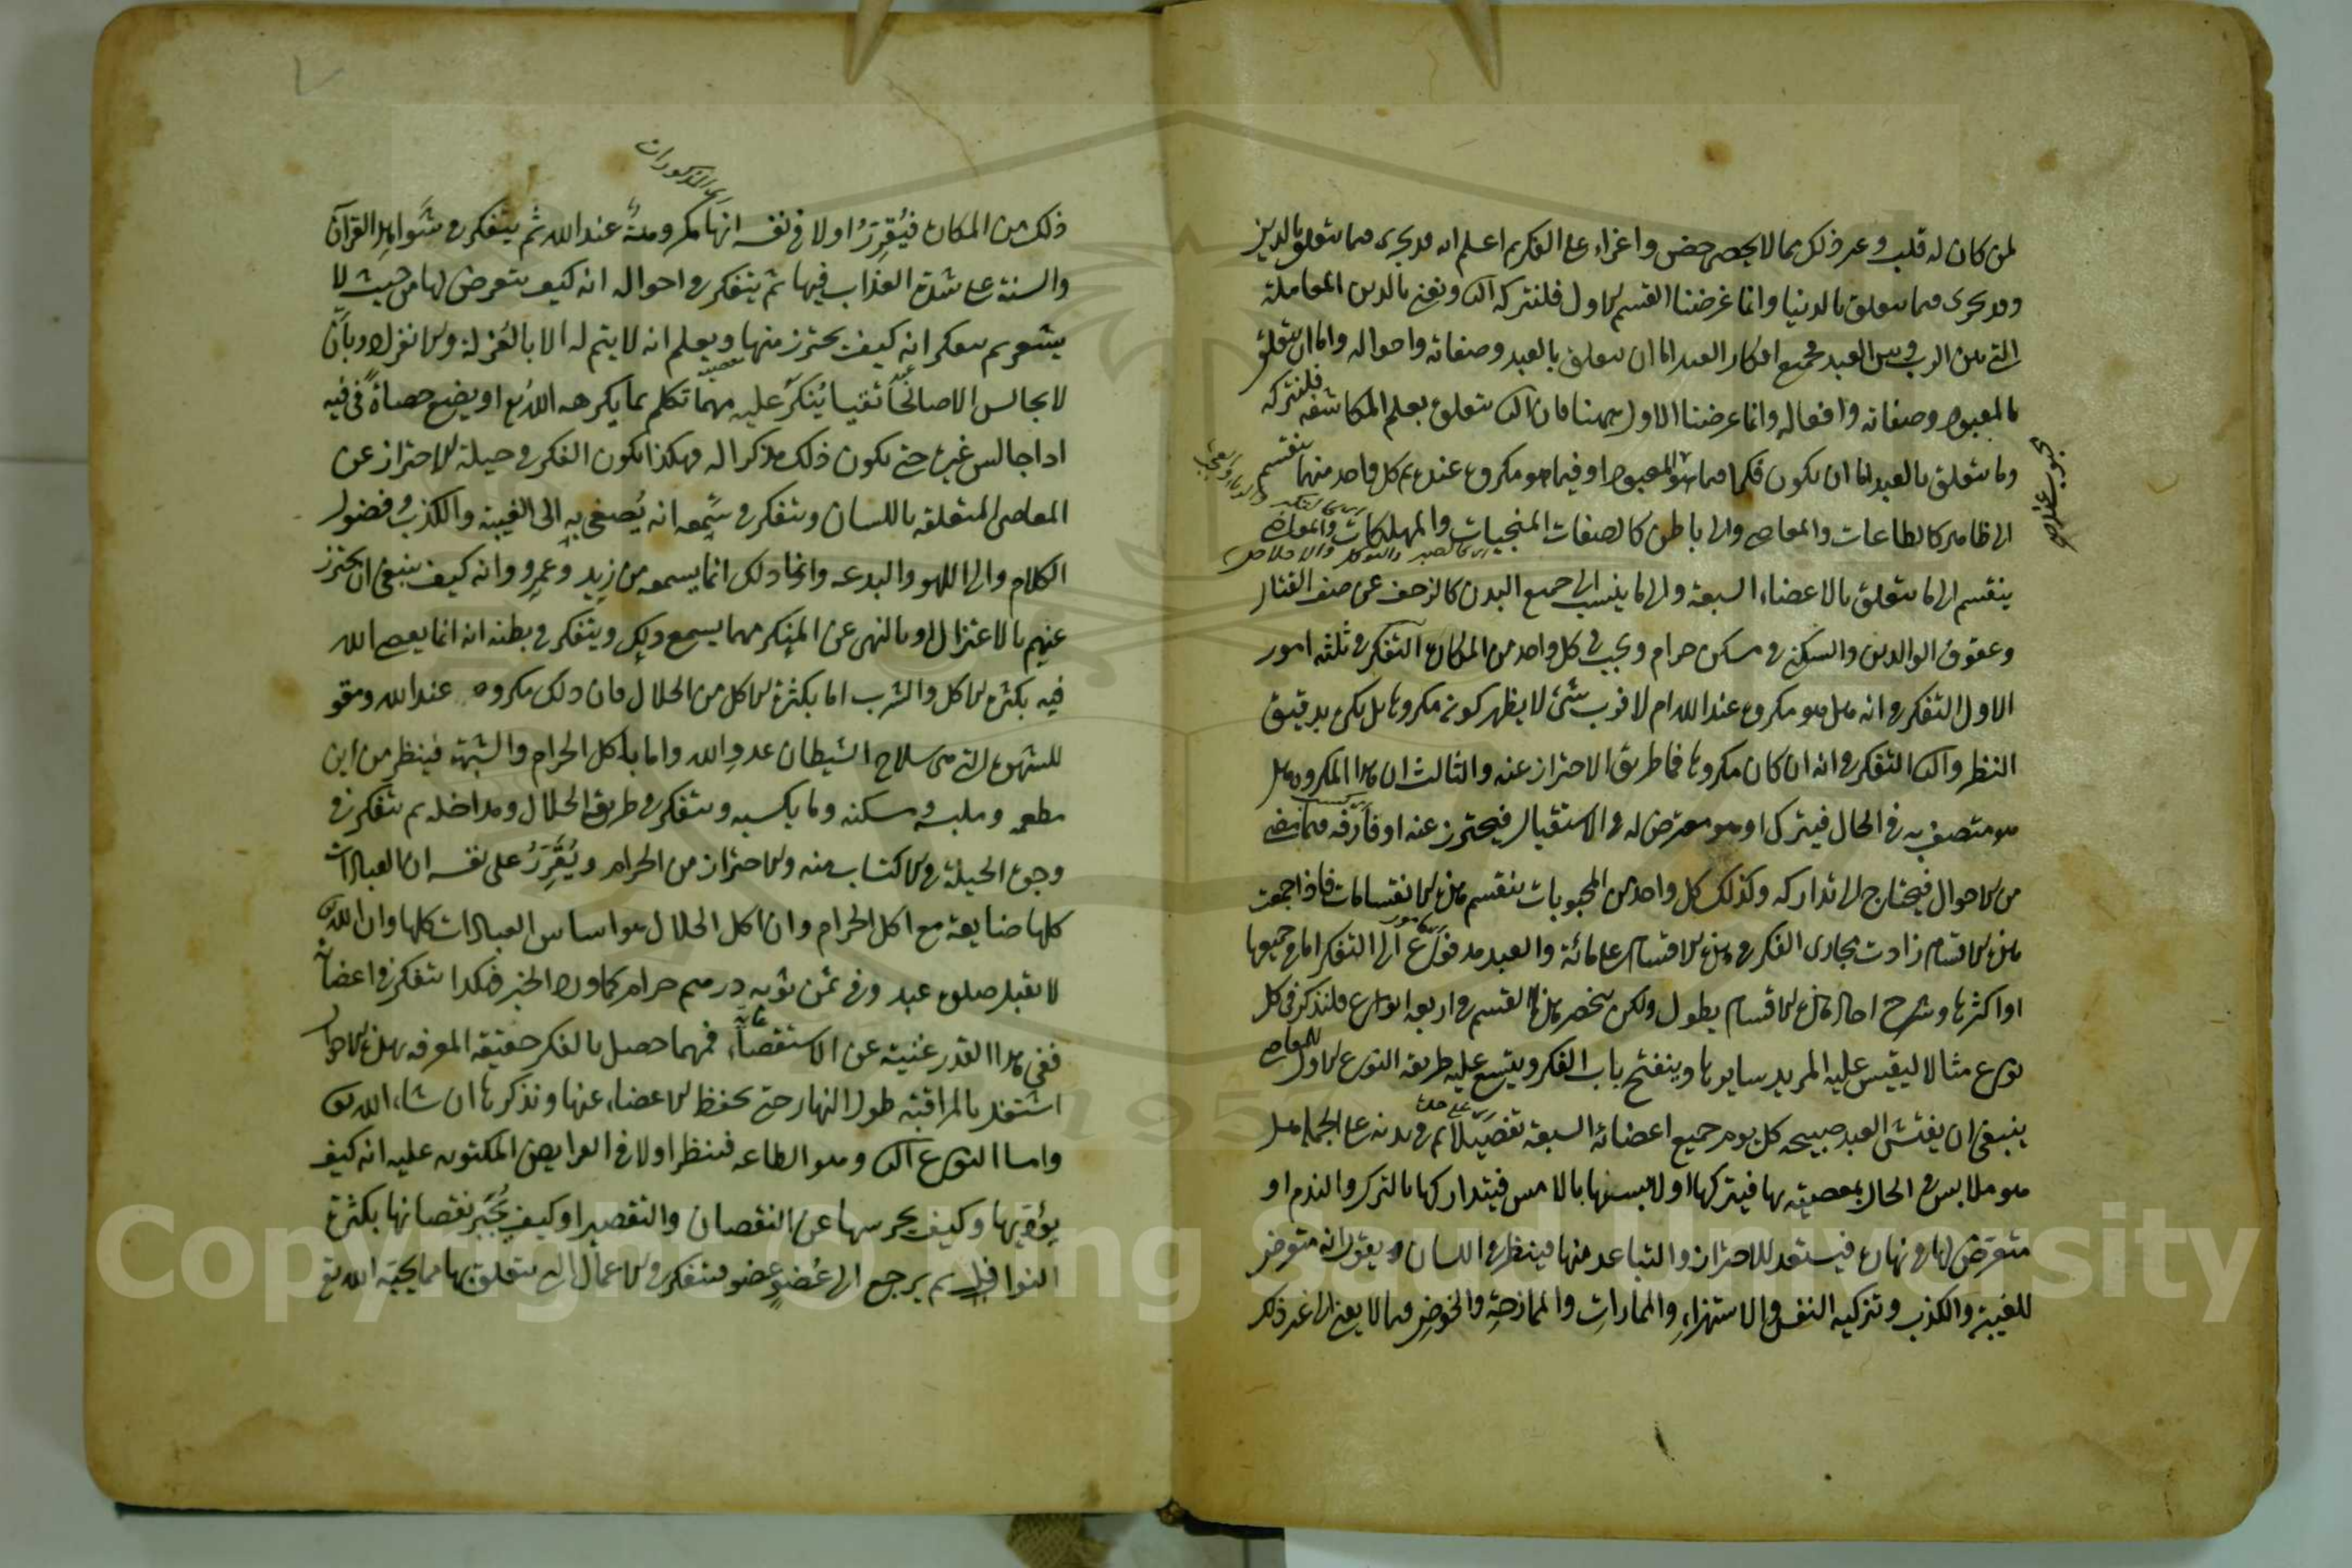 لمن كان له قلب وعر ذلك مما لا يحصر حض واغراء على الفكر ثم اعلم انه قد يجرى فيما يتعلق بالدين
وقد يجرى فيما يتعلق بالدنيا وانما غرضنا القسم الاول فلنترك الثانى ونعنى بالدين المعاملة
التى بين الرب وبين العبد فجميع افكار العبد اما ان يتعلق بالعبد وصفاته واحواله واما ان يتعلق
بالمعبود وصفاته وافعاله وانما غرضنا الاول ههنا فان الثانى يتعلق بعلم المكاشفه فلنتركه
وما يتعلق بالعبد اما ان يكون فكرا فيما هو المعبود او فيما هو مكروه عنده ثم كل واحد منهما ينقسم
الى ظاهر كالطاعات والمعاصى والى باطن كالصفات المنجيات والمهلكات والمعاصى
ينقسم الى ما يتعلق بالاعضاء السبعة والى ما ينسب الى جميع البدن كالزحف عن صف القتال
وعقوق الوالدين والسكنى فى مسكن حرام ويجب فى كل واحد من المكاره التفكر فى ثلثه امور
الاول التفكر فى انه هل هو مكروه عند الله ام لا فرب شئ لا يظهر كونه مكروها بل يكره بدقيق
النظر والثانى التفكر فى انه ان كان مكروها فما طريق الاحتراز عنه والثالث ان هذا المكروه هل
هو متصف به فى الحال فيترك او هو معترض له فى الاستقبال فيحترز عنه او قارفه فيما مضى
من الاحوال فيحتاج الى تداركه وكذلك كل واحد من المحبوبات ينقسم هذه الانقسامات فاذا جمعت
هذه الاقسام زادت مجارى الفكر فى هذه الاقسام على مائة والعبد مدفوع الى التفكر اما فى جميعها
او اكثرها وشرح احاد هذه الاقسام يطول ولكن ينحصر هذا القسم فى اربعه انواع فلنذكر فى كل
نوع مثالا ليقيس عليه المريد سايرها وينفتح باب الفكر ويتسع عليه طريقه النوع الاول المعاصى
ينبغى ان يفتش العبد صبيحه كل يوم جميع اعضائه السبعة تفصيلا ثم فى بدنه على الجملة هل
هو ملابس فى الحال بمعصيته بها فيتركها او لابسها بالامس فيتداركها بالترك والندم او
متعرض لها فى نهاره فيستعد للاحتراز والتباعد منها فينظر فى اللسان ويقول انه متعرض
للغيبة والكذب وتزكيه النفس والاستهزاء والممارات والممازحة والخوض فيما لا يعنى الى غير ذلك
ذلك من المكاره فيقرر اولا فى نفسه انها مكروهة عند الله ثم يتفكر فى شواهد القرآن
والسنة على شدة العذاب فيها ثم يتفكر فى احواله انه كيف يتعرض لها من حيث لا
يشعر ثم يتفكر انه كيف يحترز منها ويعلم انه لا يتم له الا بالعزلة والانفراد وبان
لا يجالس الا صالحا تقيا ينكر عليه مهما تكلم بما يكرهه الله تع او يضع حصاة فى فيه
اذا جالس غيره حتى يكون ذلك مذكرا له فهكذا يكون الفكر فى حيلة الاحتراز عن
المعاصى المتعلقه باللسان ويتفكر فى سمعه انه يصغى به الى الغيبة والكذب وفضول
الكلام والى اللهو والبدعه وانما ذلك انما يسمعه من زيد وعمرو وانه كيف ينبغى ان يحترز
عنهم بالاعتزال او بالنهى عن المنكر مهما يسمع ذلك ويتفكر فى بطنه انه انما يعصى الله
فيه بكثرة الاكل والشرب اما بكثرة الاكل من الحلال فان ذلك مكروه عند الله ومقو
للشهوة التى هى سلاح الشيطان عدو الله واما باكل الحرام والشبهة فينظر من اين
مطعمه وملبسه ومسكنه وما يكسبه ويتفكر فى طريق الحلال ومداخله ثم يتفكر فى
وجوه الحيلة فى الاكتساب منه والاحتراز من الحرام ويقرر على نفسه ان العبادات
كلها ضايعة مع اكل الحرام وان اكل الحلال هو اساس العبادات كلها وان الله تع
لا يقبل صلوة عبد فى ثمن ثوبه درهم حرام كما ورد الخبر فهكذا يتفكر فى اعضائه
ففى هذا القدر غنية عن الاستقصاء فمهما حصل بالفكر حقيقة المعرفه بهذه الاحوال
اشتغل بالمراقبة طول النهار حتى يحفظ الاعضاء عنها ونذكرها ان شاء الله تعالى
واما النوع الثانى وهو الطاعه فينظر اولا فى الفرايض المكتوبه عليه انه كيف
يؤديها وكيف يحرسها عن النقصان والتقصير او كيف يجبر نقصانها بكثرة
النوافل ثم يرجع الى عضو عضو فيتفكر فى الاعمال التى يتعلق بها مما يحبه الله تع
Copyright © King Saud University
1957